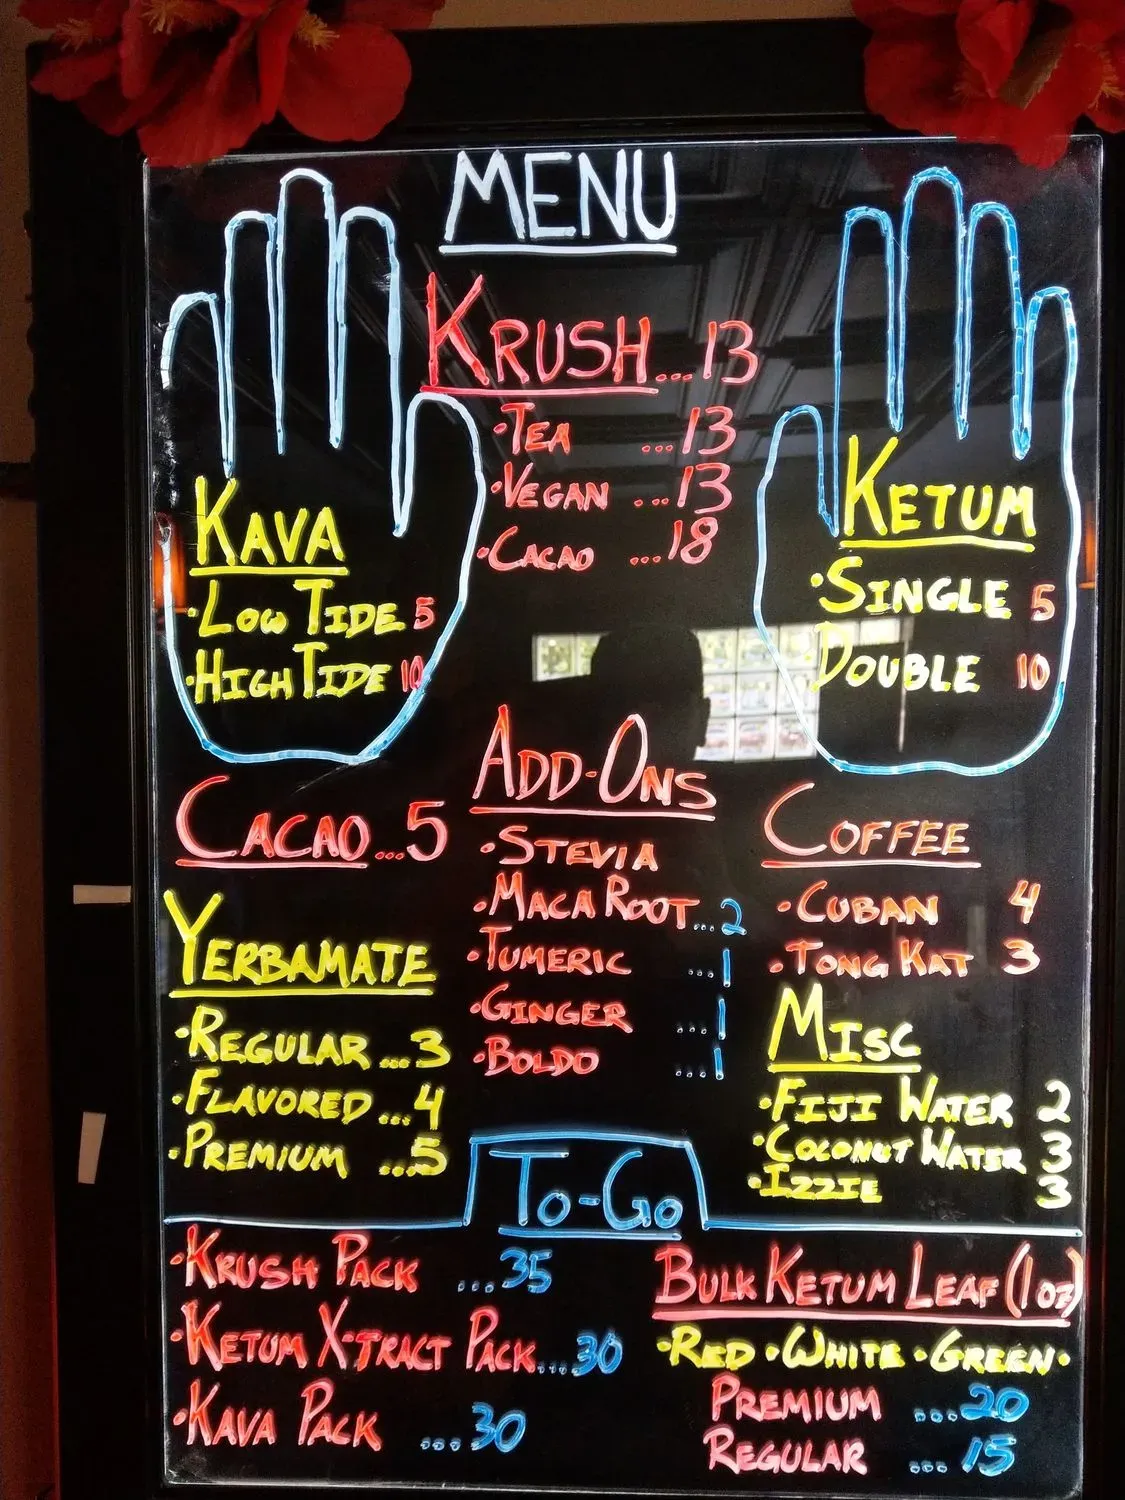 MENU
KRUSH...13
•TEA ...13
•VEGAN ...13
•CACAO ...18
KAVA
•LOW TIDE 5
•HIGH TIDE 10
KETUM
•SINGLE 5
•DOUBLE 10
CACAO...5
YERBAMATE
•REGULAR...3
•FLAVORED...4
•PREMIUM ...5
ADD-ONS
•STEVIA
•MACA ROOT...2
•TUMERIC ...1
•GINGER ...1
•BOLDO ...1
COFFEE
•CUBAN 4
•TONG KAT 3
MISC
•FIJI WATER 2
•COCONUT WATER 3
•IZZIE 3
TO-GO
•KRUSH PACK ...35
•KETUM X-TRACT PACK...30
•KAVA PACK ...30
BULK KETUM LEAF (1 oz)
•RED •WHITE •GREEN•
PREMIUM ...20
REGULAR ...15